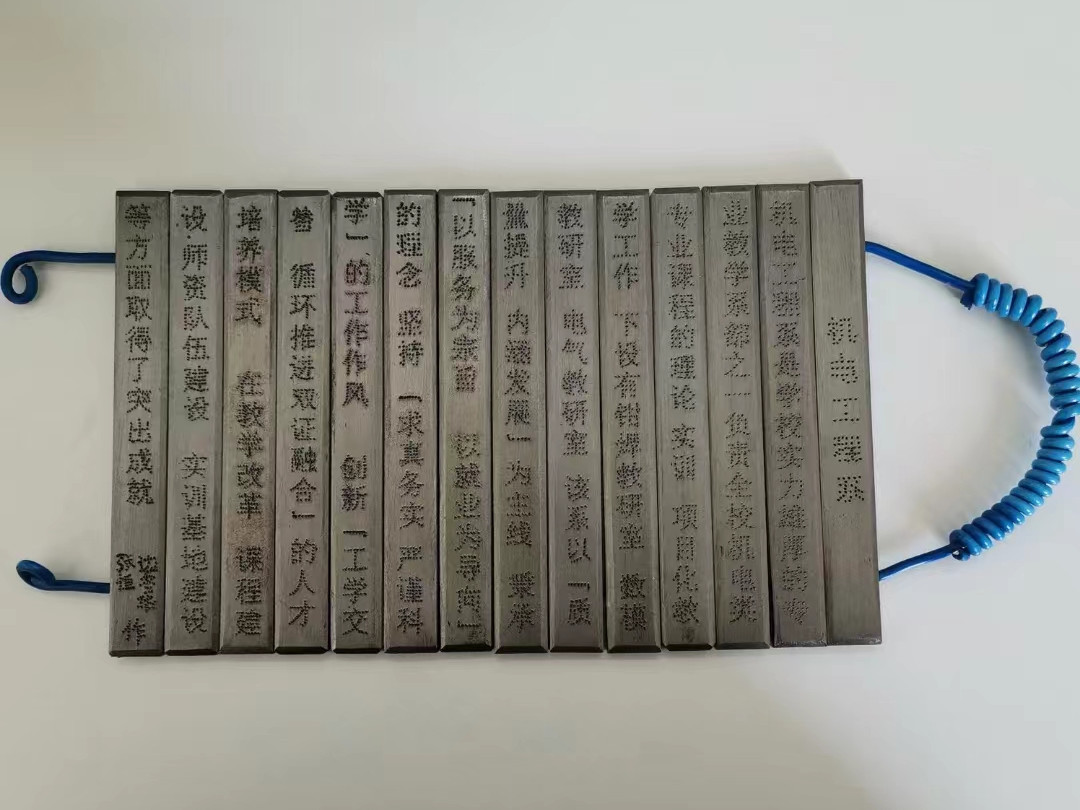 机电工程系
机电工程系是学校实力雄厚的专
业教学系部之一负责全校机电类
专业课程的理论 实训 项目化教
学工作 下设有钳焊教研室 数控
教研室 电气教研室 该系以「质
量提升 内涵发展」为主线 秉承
「以服务为宗旨 以就业为导向」
的理念 坚持「求真务实 严谨科
学」的工作作风 创新「工学交
替 循环推进双证融合」的人才
培养模式 在教学改革 课程建
设 师资队伍建设 实训基地建设
等方面取得了突出成就
张恒 作